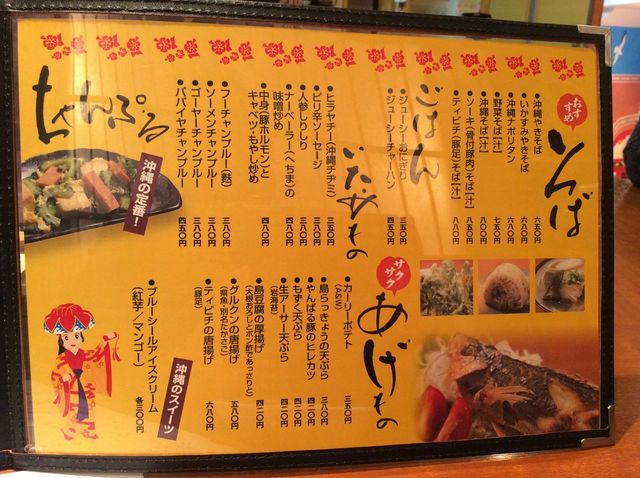 おすすめ
そば
沖縄やきそば 六五〇円
いかすみやきそば 六八〇円
沖縄ナポリタン 六八〇円
野菜そば［汁］ 七五〇円
沖縄そば［汁］
ソーキ（骨付豚肉）そば［汁］ 八〇〇円
ティビチ（豚足）そば［汁］ 八八〇円
ごはん
ジューシーおにぎり 三五〇円
ジューシーチャーハン 四五〇円
いためもの
ヒラヤチー（沖縄チヂミ） 三五〇円
ピリ辛ソーセージ 三八〇円
人参しりしり 三八〇円
ナーベーラー（へちま）の
味噌炒め 四八〇円
中身（豚ホルモン）と
キャベツ・もやし炒め 四八〇円
ちゃんぷる
沖縄の定番！
フーチャンプルー（麩） 三八〇円
ソーメンチャンプルー 三八〇円
ゴーヤーチャンプルー 三八〇円
パパイヤチャンプルー 四五〇円
サクサク
あげもの
カーリーポテト
（A&W） 三五〇円
島らっきょうの天ぷら 三八〇円
やんばる豚のヒレカツ 四八〇円
もずく天ぷら 四二〇円
生アーサー天ぷら
（岩海苔） 四二〇円
島豆腐の厚揚げ
（大根おろしとポン酢であっさりと） 四二〇円
グルクンの唐揚げ
（県魚・別名たかさご） 五八〇円
ティビチの唐揚げ
（豚足） 六八〇円
沖縄のスイーツ
ブルーシールアイスクリーム
（紅芋／マンゴー） 各三〇〇円